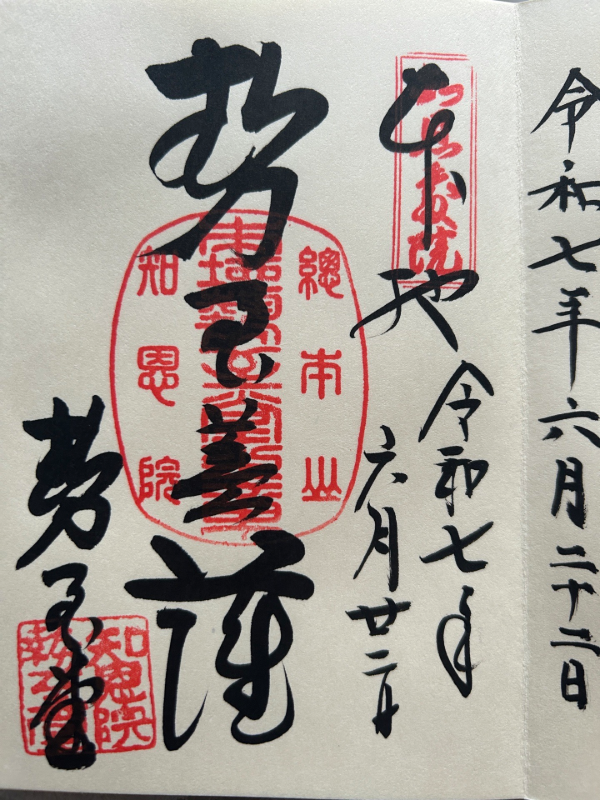 令和七年六月二十二日
本地
令和七年
六月廿二日
總本山
勢至菩薩
知恩院
勢至堂
知恩院
勢至堂